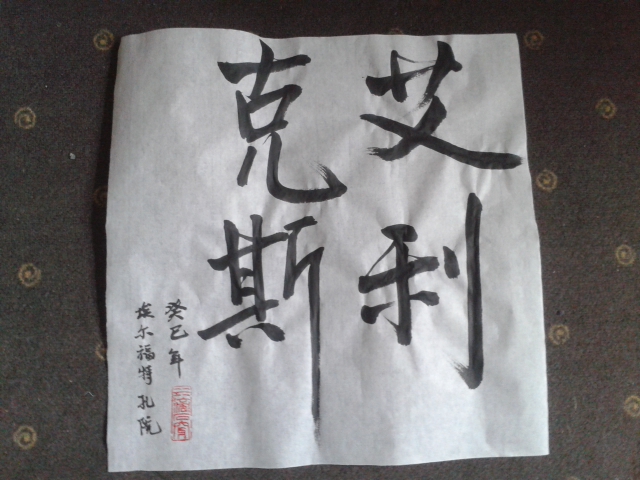 艾利
克斯
癸巳年
埃尔福特孔院